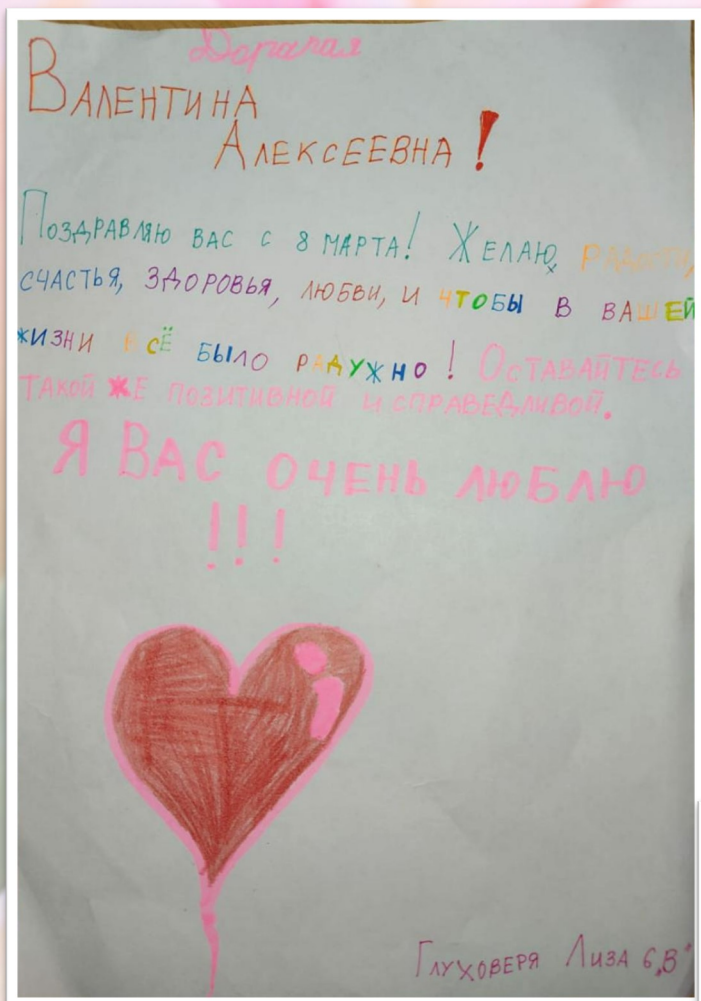 Дорагая
ВАЛЕНТИНА
АЛЕКСЕЕВНА!
ПОЗДРАВЛЯЮ ВАС С 8 МАРТА! ЖЕЛАЮ, РАДОСТИ,
СЧАСТЬЯ, ЗДОРОВЬЯ, ЛЮБВИ, И ЧТОБЫ В ВАШЕЙ
ЖИЗНИ ВСЁ БЫЛО РАДУЖНО! ОСТАВАЙТЕСЬ
ТАКОЙ ЖЕ ПОЗИТИВНОЙ И СПРАВЕДЛИВОЙ.
Я ВАС ОЧЕНЬ ЛЮБЛЮ
!!!
ГЛУХОВЕРЯ ЛИЗА 6„В"